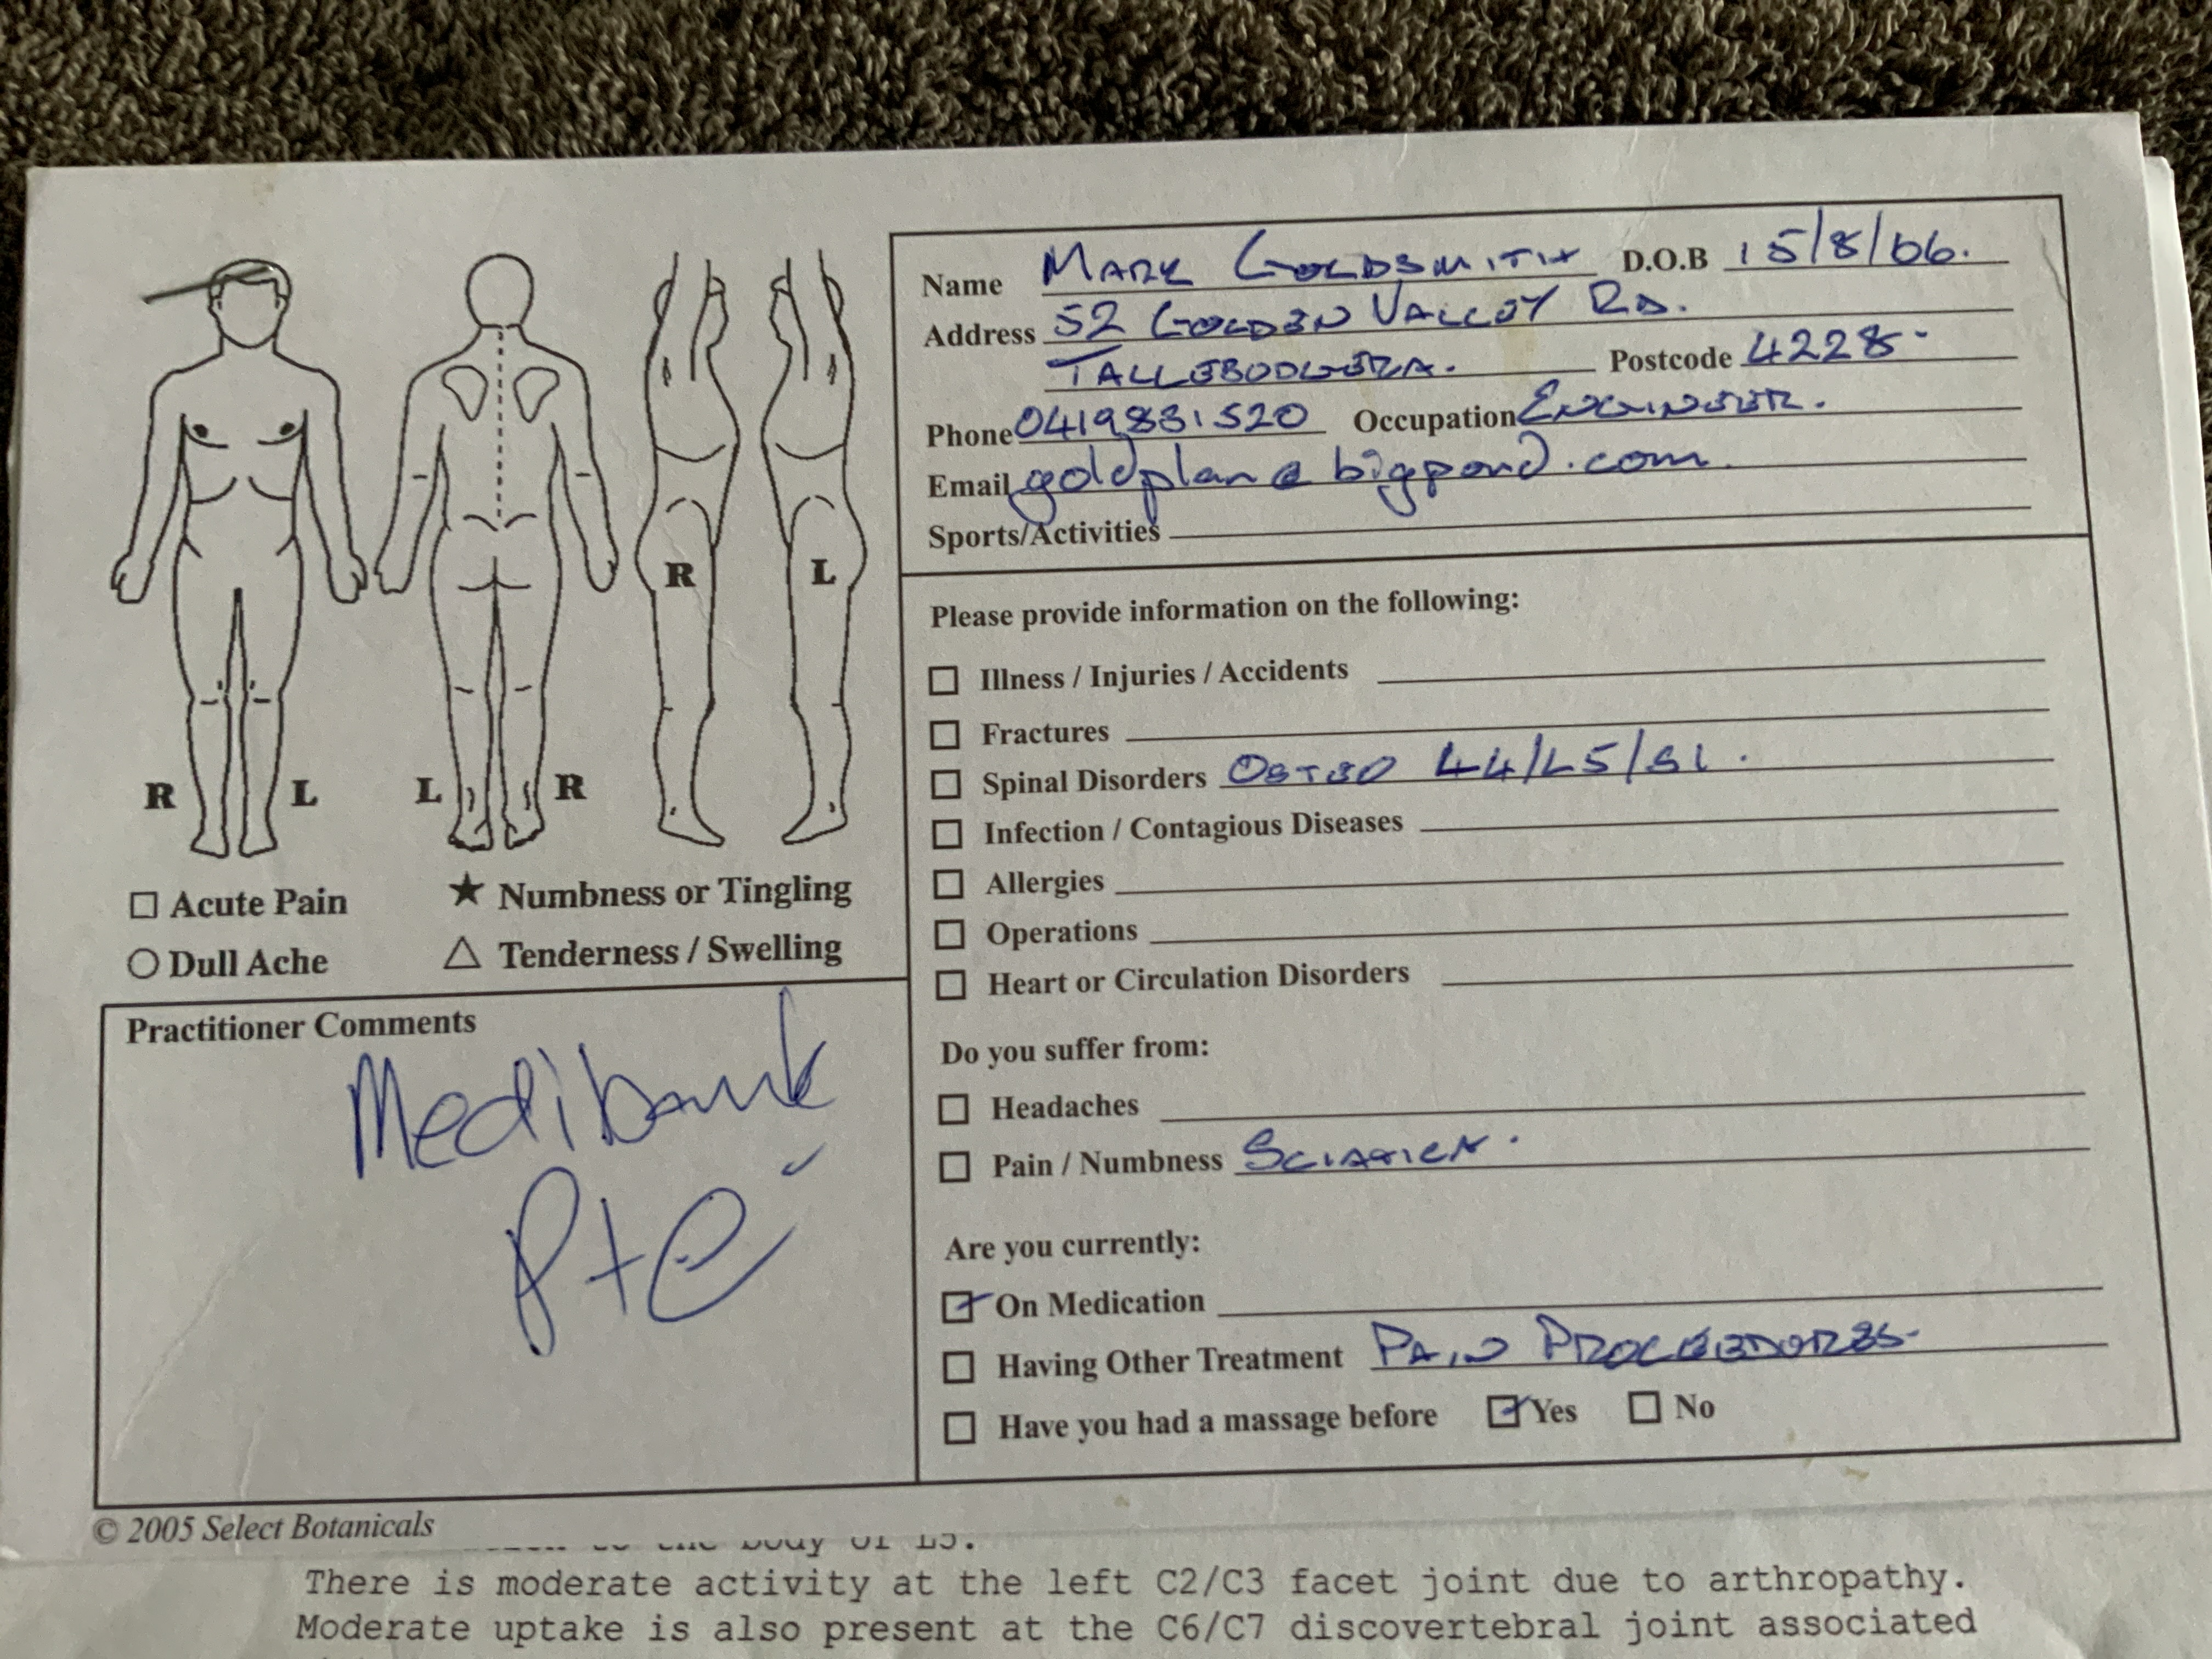 Name MARK GOLDSMITH D.O.B 15/8/66.
Address 52 GOLDEN VALLEY RD.
TALLEBUDGERA. Postcode 4228.
Phone 0419831520 Occupation ENGINEER.
Email goldplan@bigpond.com
Sports/Activities
Please provide information on the following:
Illness / Injuries / Accidents
Fractures
Spinal Disorders OSTEO L4/L5/S1.
Infection / Contagious Diseases
Allergies
Operations
Heart or Circulation Disorders
Do you suffer from:
Headaches
Pain / Numbness SCIATICA.
Are you currently:
On Medication
Having Other Treatment PAIN PROCEEDORES.
Have you had a massage before Yes No
R L
L R
R L
Acute Pain ★ Numbness or Tingling
Dull Ache △ Tenderness / Swelling
Practitioner Comments
Medibank
Pte
© 2005 Select Botanicals
the body of L5.
There is moderate activity at the left C2/C3 facet joint due to arthropathy.
Moderate uptake is also present at the C6/C7 discovertebral joint associated